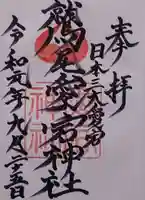 奉拝
日本三大愛宕
鷲尾愛宕神社
令和元年九月二五日